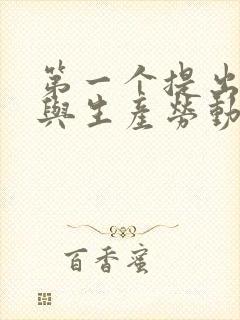 第一个提出
與生產勞動
百香蜜